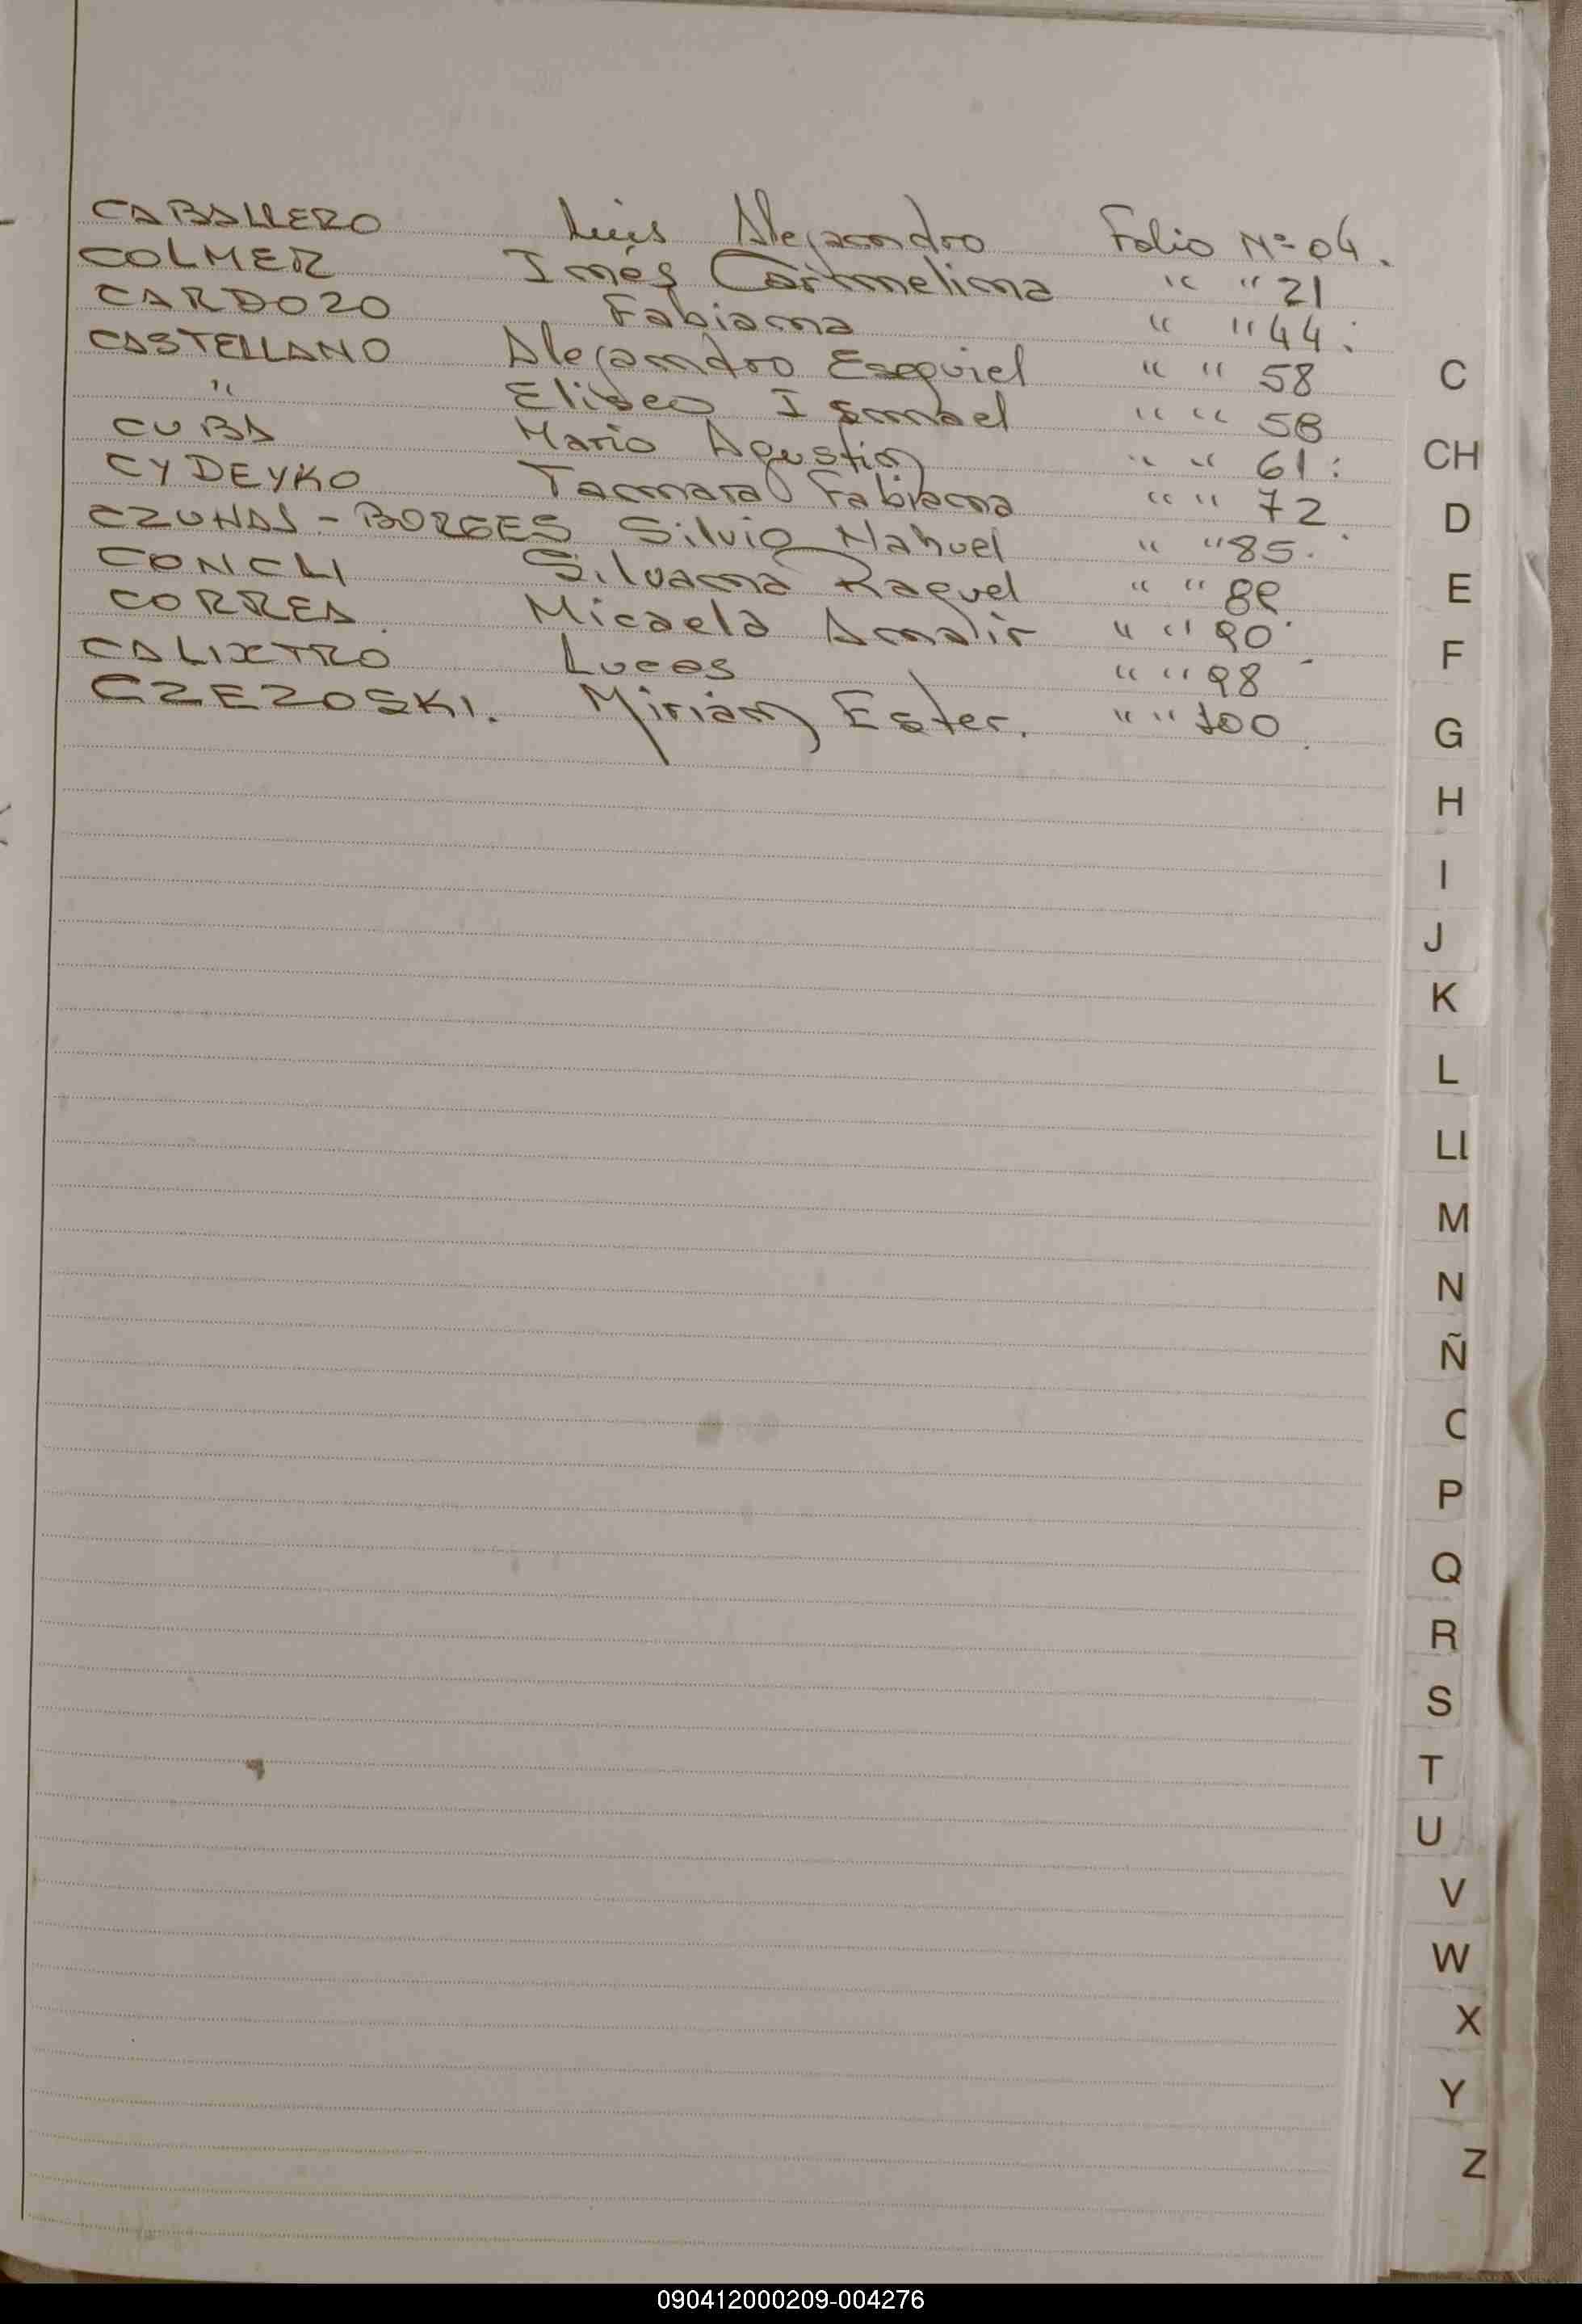 CABALLERO Luis Alejandro Folio Nº 04.
COLMER Inés Carmelina " " 21
CARDOZO Fabiana " " 44.
CASTELLANO Alejandro Esequiel " " 58
" Eliseo Ismael " " 58
CUBA Mario Agustin " " 61.
CYDEYKO Tamara Fabiana " " 72
CZUHAJ - BORGES Silvio Nahuel " " 85.
Silvana Raquel " " 89
CORREA Micaela Anair " " 90
CALIXTRO Lucas " " 98
CZEZOSKI. Miriam Ester. " " 100
C
CH
D
E
F
G
H
I
J
K
L
LL
M
N
Ñ
O
P
Q
R
S
T
U
V
W
X
Y
Z
090412000209-004276